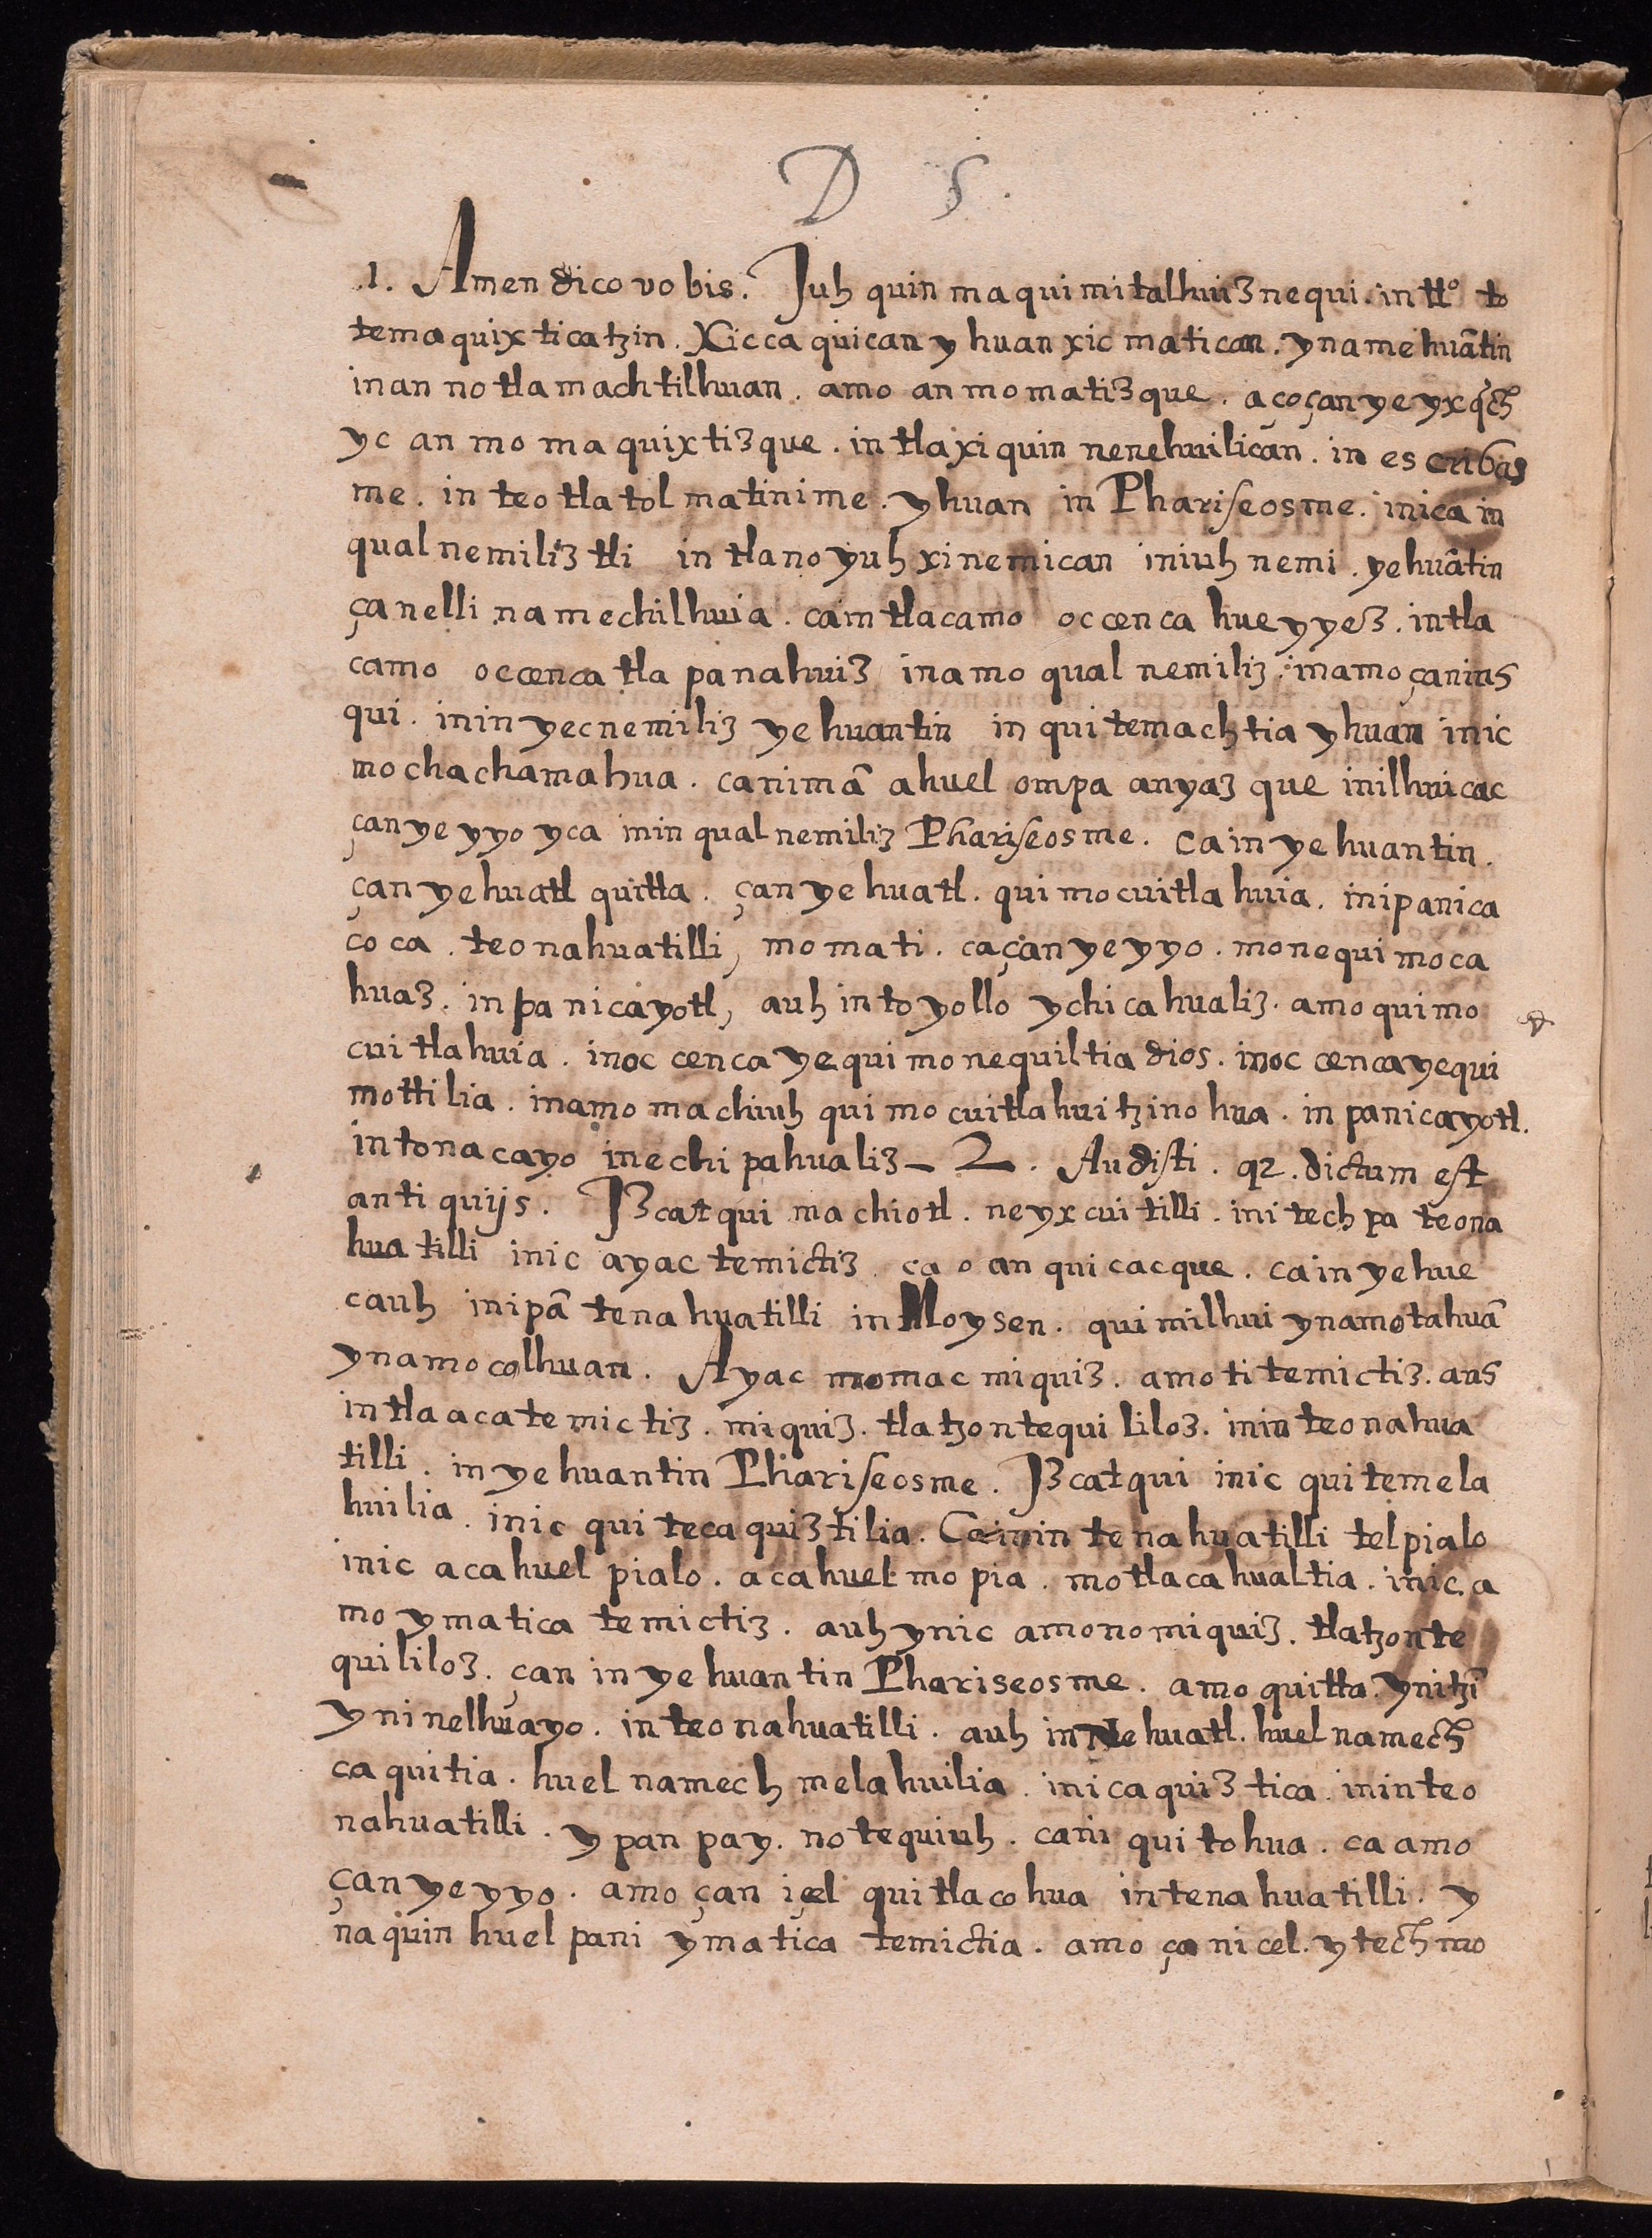 D S.
.1. Amen dico vobis. Juh quin ma quimitalhuiznequi. in tt.º to
temaquixticatzin. Xiccaquican yhuan xicmatican. ynamehuãtin
in an notlamachtilhuan. amo anmomatizque. aço çan yeyxq̃ch
yc anmomaquixtizque. intla xiquinnenehuilican. in escribas
me. in teotlatolmatinime. yhuan in Phariseosme. inica in
qualnemiliztli intla no yuh xinemican iniuh nemi. yehuãtin
ça nelli namechilhuia. ca intlacamo occenca huey yez. intla
camo occenca tlapanahuiz in amo qualnemiliz. in amo çan iuh
qui. inin yecnemiliz yehuantin in quitemachtia yhuan inic
mochachamahua. ca nimã ahuel ompa anyazque in ilhuicac
çan yeyyo yca inin qualnemiliz Phariseosme. ca in yehuantin.
çan yehuatl quitta. çan yehuatl. quimocuitlahuia. in ipan ica
coca. teonahuatilli, momati. ca çan yeyyo. monequi moca
huaz. in panicayotl, auh in toyollo ychicahualiz. amo quimo
cuitlahuia. in oc cenca ye quimonequiltia dios. in oc cenca ye qui
mottilia. in amo machiuh quimocuitlahuitzinohua. in panicayotl.
in tonacayo inechipahualiz – 2. Audisti. qz. dictum est
antiquijs. Izcatqui machiotl. neyxcuitilli. initechpa teona
huatilli inic ayac temictiz. ca o anquicacque. ca in ye hue
cauh inipã tenahuatilli in Moysen. quimilhui ynamotahuã
ynamocolhuan. Ayac momac miquiz. amo titemictiz. auh
intla aca temictiz. miquiz. tlatzontequililoz. inin teonahua
tilli. in yehuantin Phariseosme. Izcatqui inic quitemela
huilia. inic quitecaquiztilia. Ca inin tenahuatilli tel pialo
inic aca huel pialo. aca huel mopia. motlacahualtia. inic a
mo ymatica temictiz. auh ynic amo no miquiz. tlatzonte
quililoz. çan in yehuantin Phariseosme. amo quitta. ynitzĩ
yninelhuayo. in teonahuatilli. auh in Nehuatl. huel namech
caquitia. huel namechmelahuilia. inic aquiztica. inin teo
nahuatilli. ypanpa y. notequiuh. ca ni quitohua. ca amo
çan yeyyo. amo çan içel quitlacohua in tenahuatilli. y
naquin huel pani ymatica temictia. amo ça nicel. ytech mo